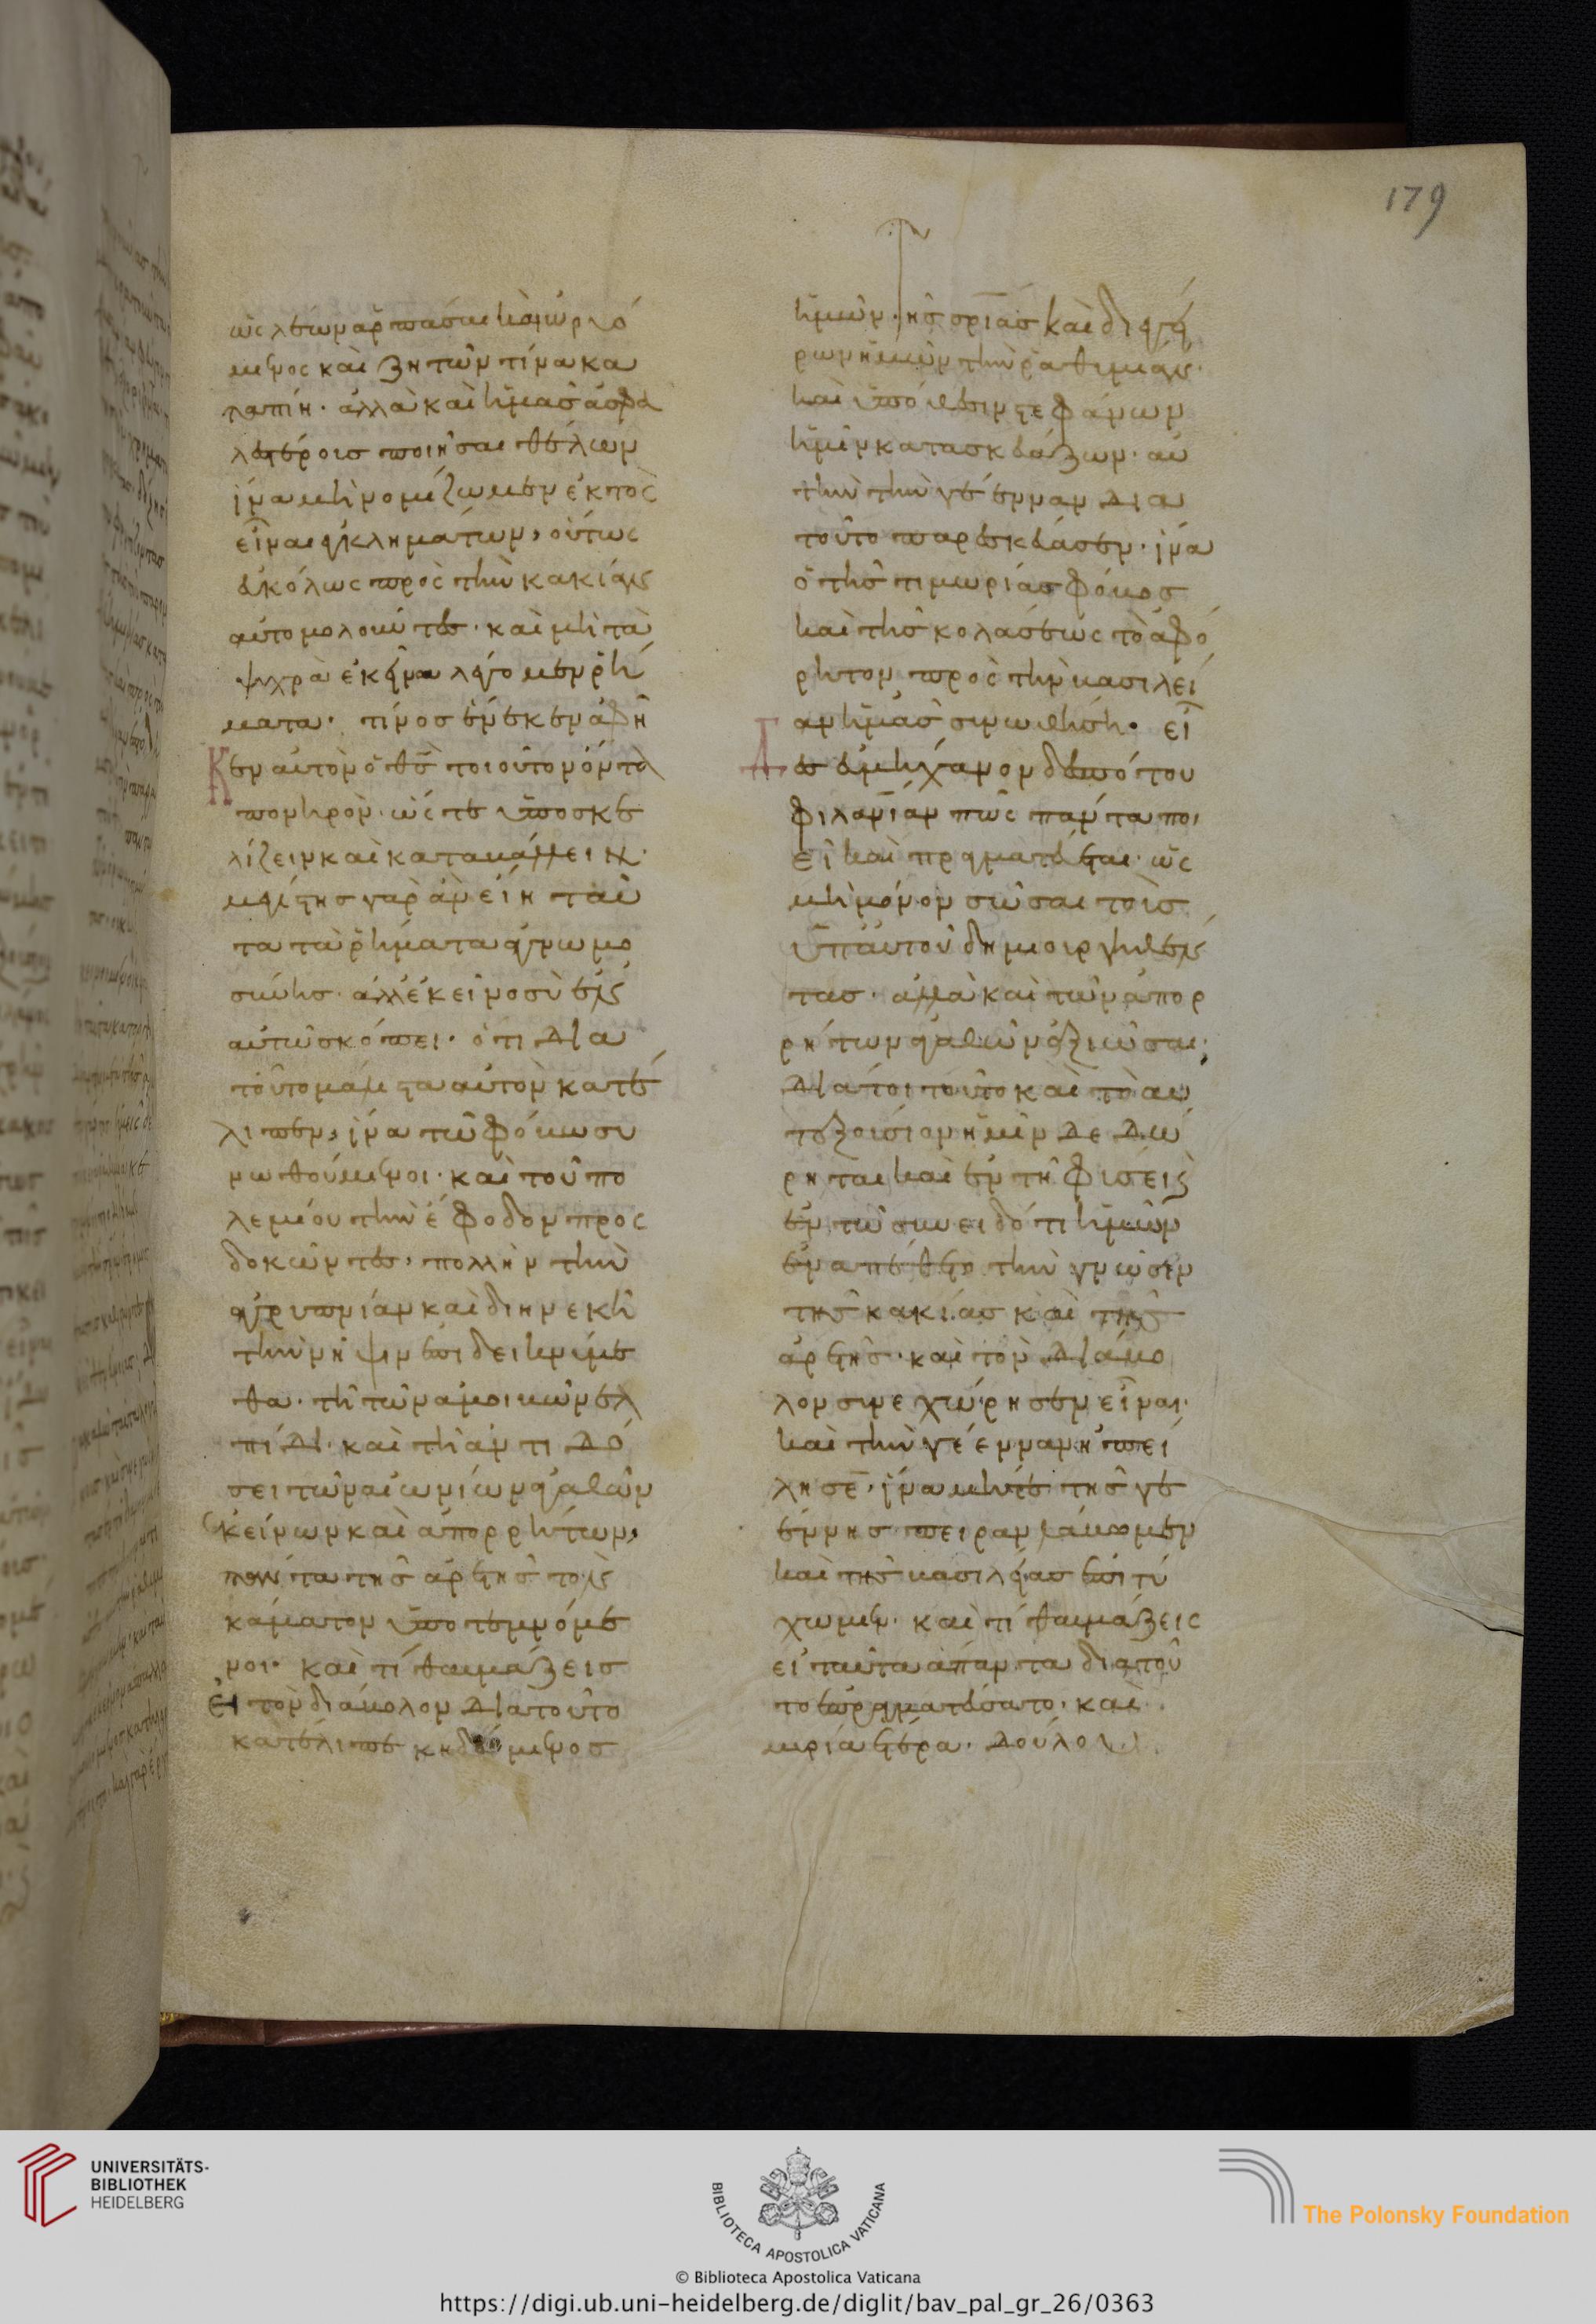 179
ὡς λέων ἁρπάσαι καὶ ὠρυό
μενος καὶ ζητῶν τίνα κα
ταπίη· ἀλλὰ καὶ ἡμᾶς ἀσφα
λεστέρους ποιῆσαι θέλων
ἵνα μὴ νομίζωμεν ἐκτὸς
εἶναι ἐγκλημάτων, οὕτως
εὐκόλως πρὸς τὴν κακίαν
αὐτομολοῦντες· καὶ μὴ τὰ
ψυχρὰ ἐκεῖνα λέγομεν ῥή
ματα· τίνος ἕνεκεν ἀφῆ
κεν αὐτὸν ὁ θς τοιοῦτον ὄντα
πονηρόν· ὥς τε ὑποσκε
λίζειν καὶ καταβάλλειν·
μεγίστης γὰρ ἂν εἴη ταῦ
τα τὰ ῥήματα ἀγνωμο
σύνης· ἀλλ' ἐκεῖνο σὺ ἐν ἑ
αυτῷ σκόπει· ὅτι δια
τοῦτο μάλιστα αὐτὸν κατέ
λιπεν, ἵνα τῷ φόβω συ
νωθούμενοι· καὶ τοῦ πο
λεμίου τὴν ἔφοδον προς
δοκῶντες, πολλὴν τὴν
ἀγρυπνίαν καὶ διηνεκῆ
τὴν νῆψιν ἐπιδεικνύμε
θα· τῆ τῶν ἀμοιβῶν ἐλ
πίδι· καὶ τῆ ἀντιδό
σει τῶν αἰωνίων ἀγαθῶν
ἐκείνων καὶ ἀπορρήτων,
πάντα τῆς ἀρετῆς τὸν
κάματον ὑποτεμνόμε
νοι· καὶ τί θαυμάζεις
εἰ τὸν διάβολον διατοῦτο
κατέλιπε κηδόμενος
ἡμῶν τῆς σριας καὶ διεγεί
ρων ἡμῶν τὴν ῥαθυμίαν·
καὶ ὑπόθεσιν στεφάνων
ἡμῖν κατασκευάζων· αὐ
τὴν τὴν γέενναν δια
τοῦτο παρεσκεύασεν· ἵνα
ὁ τῆς τιμωρίας φόβος
καὶ τῆς κολάσεως τὸ ἀφό
ρητον πρὸς τὴν βασιλεί
αν ἡμᾶς συνωθήση· εἶ
δες εὐμήχανον δεσπότου
φιλανιαν πῶς πάντα ποι
εῖ καὶ πραγματεύεται· ὡς
μὴ μόνον σῶσαι τοὺς
ὑπ' αὐτοῦ δημιουργηθέν
τας· ἀλλὰ καὶ τῶν ἀπορ
ρήτων ἀγαθῶν ἀξιῶσαι·
διάτοι τοῦτο καὶ τὸ αὐ
τεξούσιον ἡμῖν δεδώ
ρηται καὶ ἐν τῆ φύσει καὶ
ἐν τῷ συνειδότι ἡμῶν
ἐναπέθετο τὴν γνῶσιν
τῆς κακίας καὶ τῆς
ἀρετῆς· καὶ τὸν διάβο
λον συνεχώρησεν εἶναι·
καὶ τὴν γέενναν ἠπεί
λησε, ἵνα μήτε τῆς γε
έννης πεῖραν λάβωμεν
καὶ τῆς βασιλείας ἐπιτύ
χωμεν· καὶ τί θαυμάζεις
εἰ ταῦτα ἅπαντα δια τοῦ
το ἐπραγματεύσατο· καὶ
μυρία ἕτερα· δούλου
UNIVERSITÄTS-
BIBLIOTHEK
HEIDELBERG
BIBLIOTECA APOSTOLICA VATICANA
© Biblioteca Apostolica Vaticana
The Polonsky Foundation
https://digi.ub.uni-heidelberg.de/diglit/bav_pal_gr_26/0363